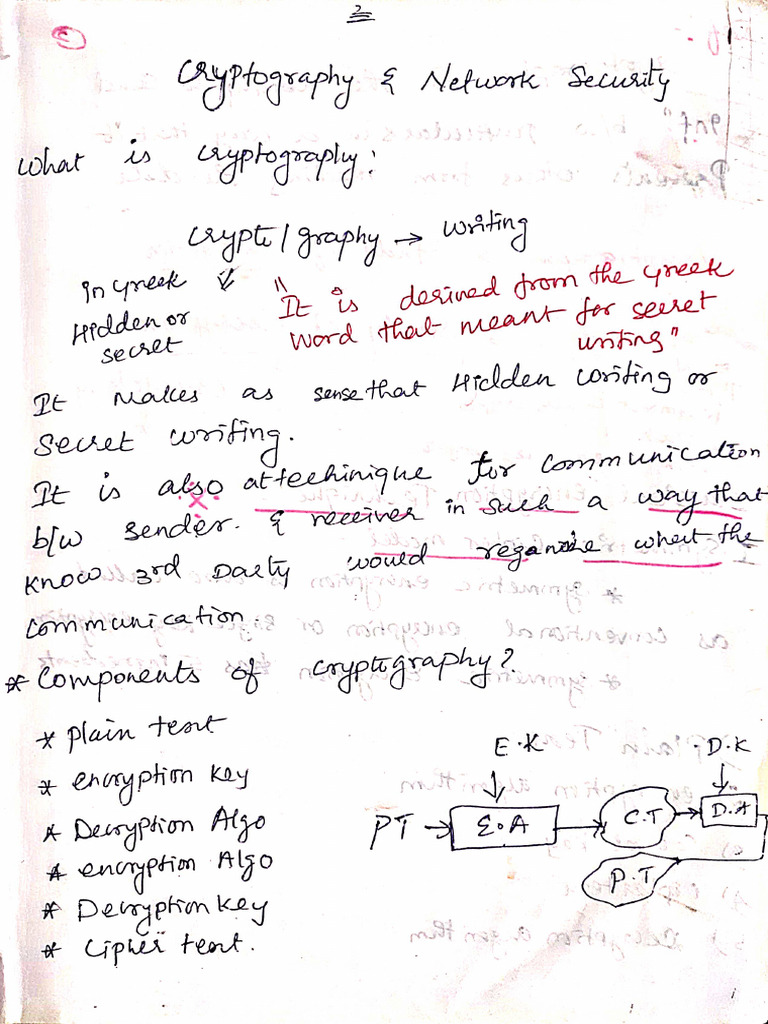 2
Cryptography & Network Security
What is cryptography:
Crypto/graphy → writing
in Greek
Hidden or
secret
"It is derived from the Greek
word that meant for secret
writing"
It makes as sense that Hidden writing or
Secret writing.
It is also a technique for communication
b/w sender & receiver in such a way that
know 3rd party would what the
communication.
* Components of cryptography?
* plain text
* encryption key
* Decryption Algo
* encryption Algo
* Decryption key
* Cipher text.
E.K
D.K
PT → E.A → C.T → D.A
P.T